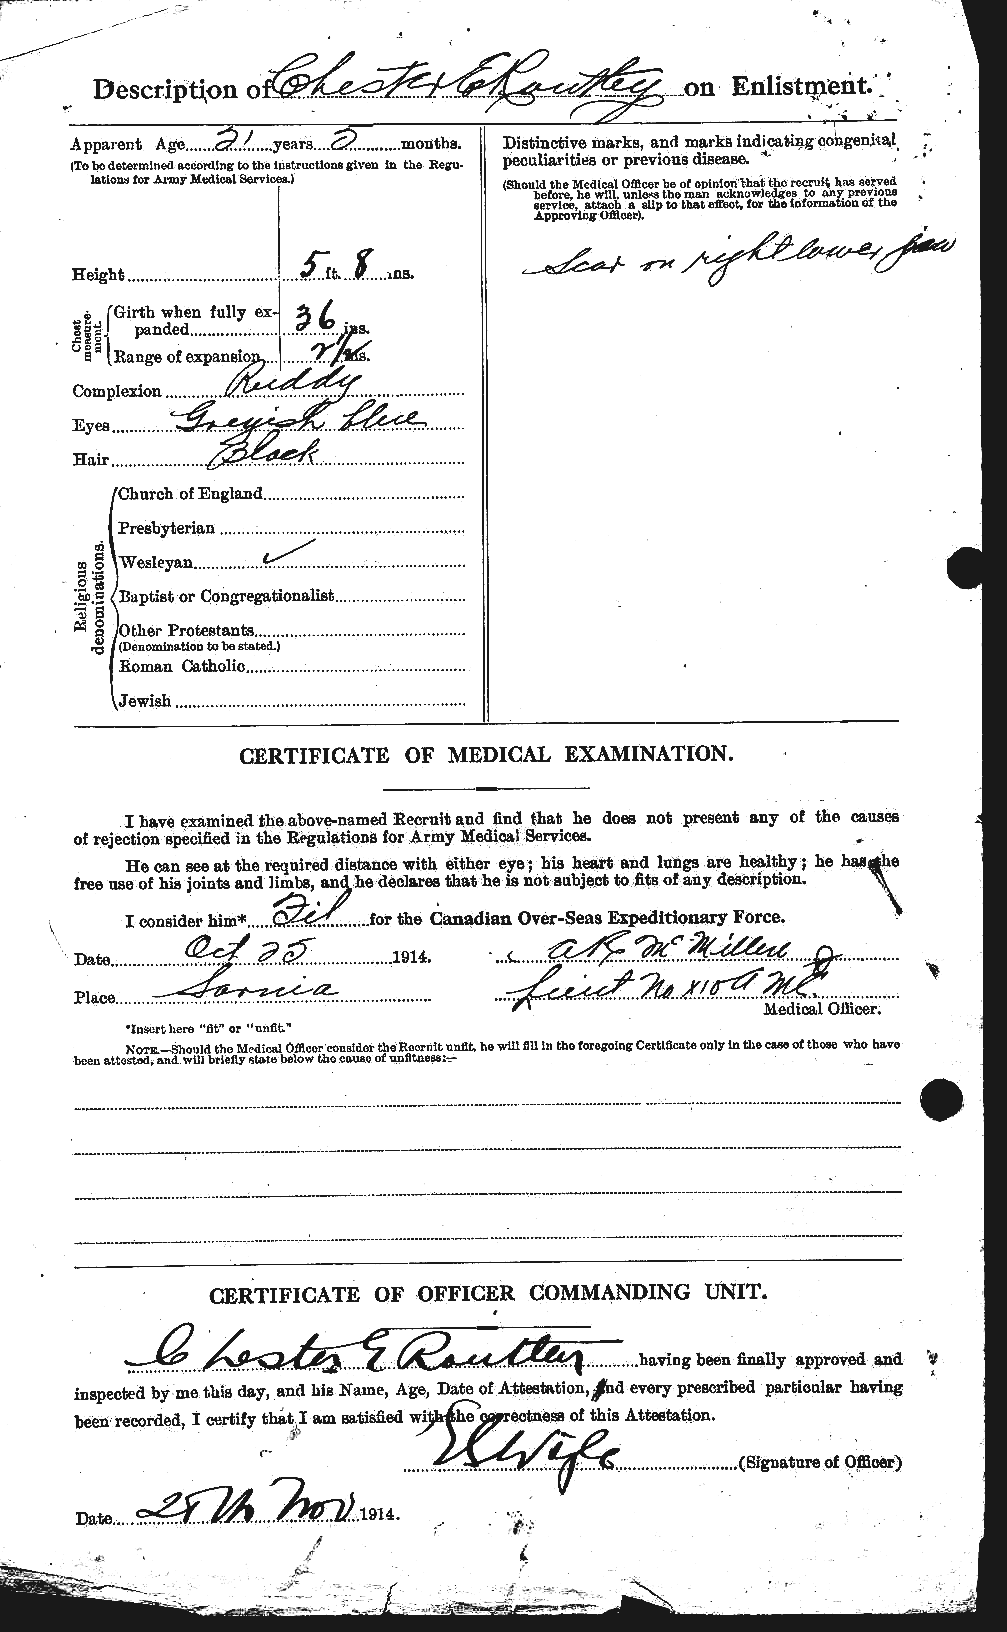 Description of Chester E Routley on Enlistment.
Apparent Age 21 years 2 months.
(To be determined according to the instructions given in the Regu-
lations for Army Medical Services.)
Height 5 ft. 8 ins.
Chest measure-ment.
Girth when fully ex-
panded 36 ins.
Range of expansion ins.
Complexion Ruddy
Eyes Greyish blue
Hair Black
Religious denominations.
Church of England
Presbyterian
Wesleyan ✓
Baptist or Congregationalist
Other Protestants
(Denomination to be stated.)
Roman Catholic
Jewish
Distinctive marks, and marks indicating congenital
peculiarities or previous disease.
(Should the Medical Officer be of opinion that the recruit has served
before, he will, unless the man acknowledges to any previous
service, attach a slip to that effect, for the information of the
Approving Officer).
Scar on right lower jaw
CERTIFICATE OF MEDICAL EXAMINATION.
I have examined the above-named Recruit and find that he does not present any of the causes
of rejection specified in the Regulations for Army Medical Services.
He can see at the required distance with either eye; his heart and lungs are healthy; he has the
free use of his joints and limbs, and he declares that he is not subject to fits of any description.
I consider him* Fit for the Canadian Over-Seas Expeditionary Force.
Date Oct 25 1914.
Mc Millen
Place Sarnia
Lieut No X 10 A M C
Medical Officer.
*Insert here "fit" or "unfit."
NOTE.—Should the Medical Officer consider the Recruit unfit, he will fill in the foregoing Certificate only in the case of those who have
been attested, and will briefly state below the cause of unfitness:—
CERTIFICATE OF OFFICER COMMANDING UNIT.
Chester E Routley having been finally approved and
inspected by me this day, and his Name, Age, Date of Attestation, and every prescribed particular having
been recorded, I certify that I am satisfied with the correctness of this Attestation.
(Signature of Officer)
Date Nov 1914.